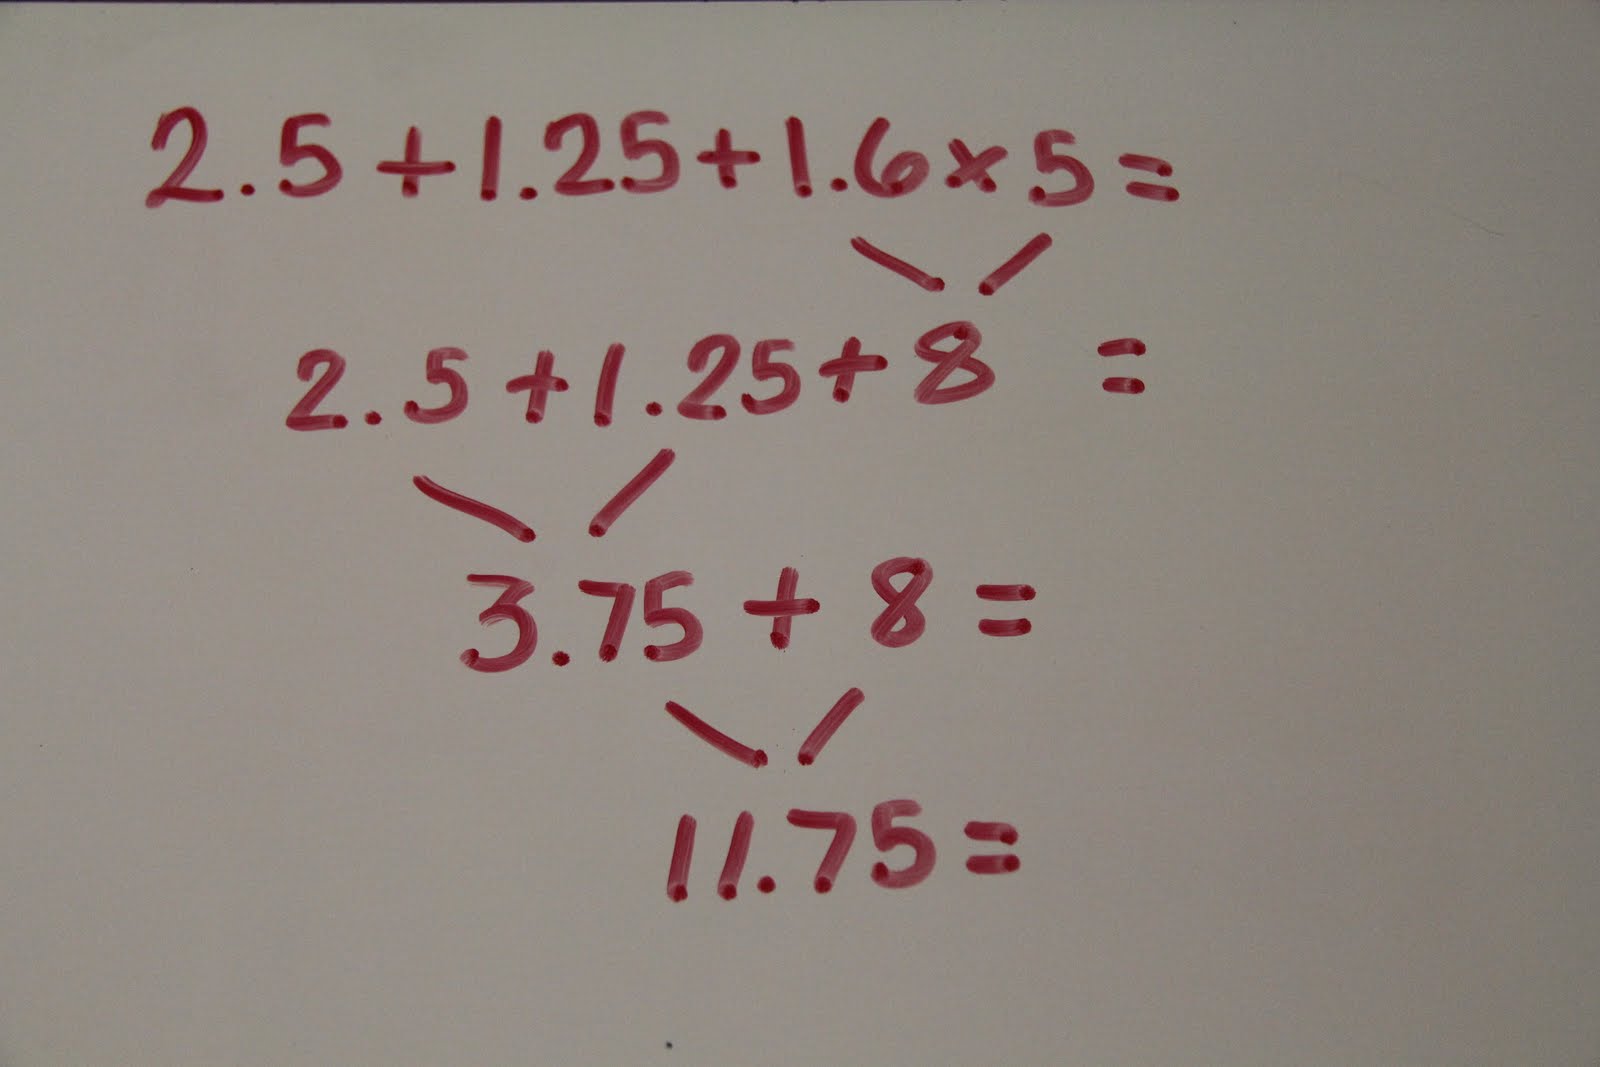 2.5+1.25+1.6×5=
2.5+1.25+8 =
3.75+8=
11.75=